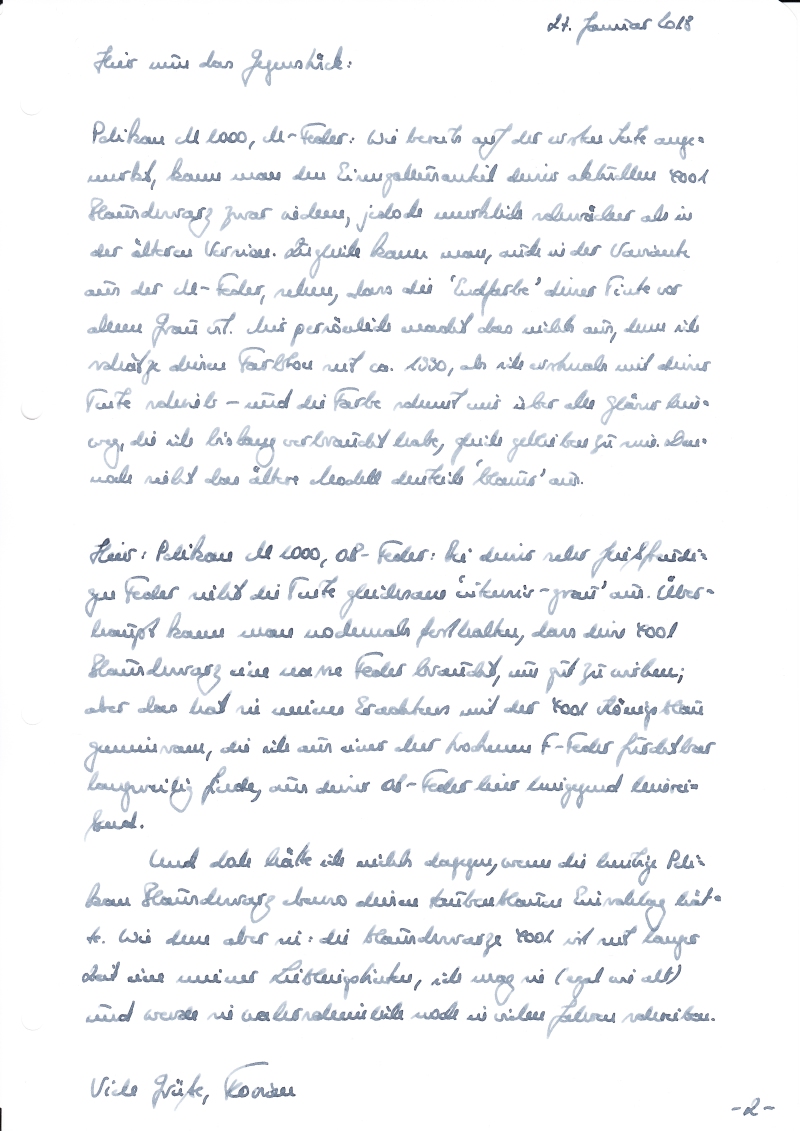 27. Januar 2018
Hier nun das Gegenstück:
Pelikan M 1000, M-Feder: Wie bereits auf der ersten Seite ange-
merkt, kann man den Eisengallusanteil dieser aktuellen 4001
Blauschwarz zwar erkennen, jedoch merklich schwächer als in
der älteren Version. Zugleich kann man, auch in der Variante
aus der M-Feder, sehen, dass die 'Endfarbe' dieser Tinte vor
allem Grau ist. Mir persönlich macht das nichts aus, denn ich
schätze diesen Farbton seit ca. 1990, als ich erstmals mit dieser
Tinte schrieb – und die Farbe scheint mir über alle Gläser hin-
weg, die ich bislang verbraucht habe, gleich geblieben zu sein. Den-
noch sieht das ältere Modell deutlich 'blauer' aus.
Hier: Pelikan M 1000, OB-Feder: Bei dieser sehr
gen Feder sieht die Tinte gleichsam aus. Über-
haupt kann man nochmals festhalten, dass diese 4001
Blauschwarz eine nasse Feder braucht, um gut zu wirken;
aber das hat sie meines Erachtens mit der 4001 Königsblau
gemeinsam, die ich aus einer eher trockenen F-Feder furchtbar
langweilig finde, aus dieser OB-Feder hier hingegend hinrei-
ßend.
Und doch hätte ich nichts dagegen, wenn die heutige Peli-
kan Blauschwarz ebenso diesen taubenblauen Einschlag hät-
te. Wie dem aber sei: die blauschwarze 4001 ist seit langer
Zeit eine meiner Lieblingstinten, ich mag sie (egal wie alt)
und werde sie wahrscheinlich noch in vielen Jahren schreiben.
Viele Grüße, Florian
-2-